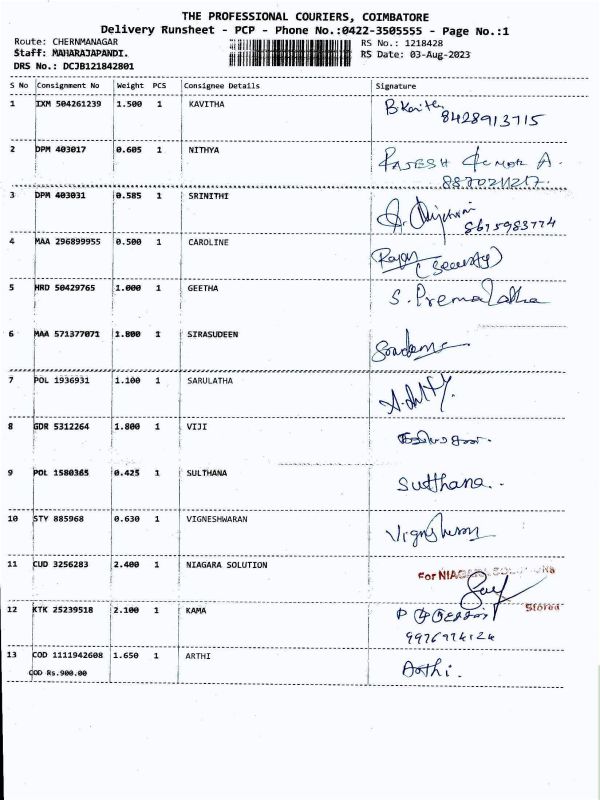 THE PROFESSIONAL COURIERS, COIMBATORE
Delivery Runsheet - PCP - Phone No.:0422-3505555 - Page No.:1
Route: CHERNMANAGAR
Staff: MAHARAJAPANDI.
DRS No.: DCJB121842801
RS No.: 1218428
RS Date: 03-Aug-2023
S No Consignment No Weight PCS Consignee Details Signature
1 IXM 504261239 1.500 1 KAVITHA
8428913715
2 DPM 403017 0.605 1 NITHYA RAJESH Kumar A.
3 DPM 403031 0.585 1 SRINITHI
8675983774
4 MAA 296899955 0.500 1 CAROLINE
(Security)
5 HRD 50429765 1.000 1 GEETHA S. Premalatha
6 MAA 571377071 1.800 1 SIRASUDEEN
7 POL 1936931 1.100 1 SARULATHA
8 GDR 5312264 1.800 1 VIJI
9 POL 1580365 0.425 1 SULTHANA Sulthana.
10 STY 885968 0.630 1 VIGNESHWARAN
11 CUD 3256283 2.400 1 NIAGARA SOLUTION For NIAGARA SOLUTIONS
Stores
12 KTK 25239518 2.100 1 KAMA
13 COD 1111942608 1.650 1 ARTHI Arthi.
COD Rs.900.00